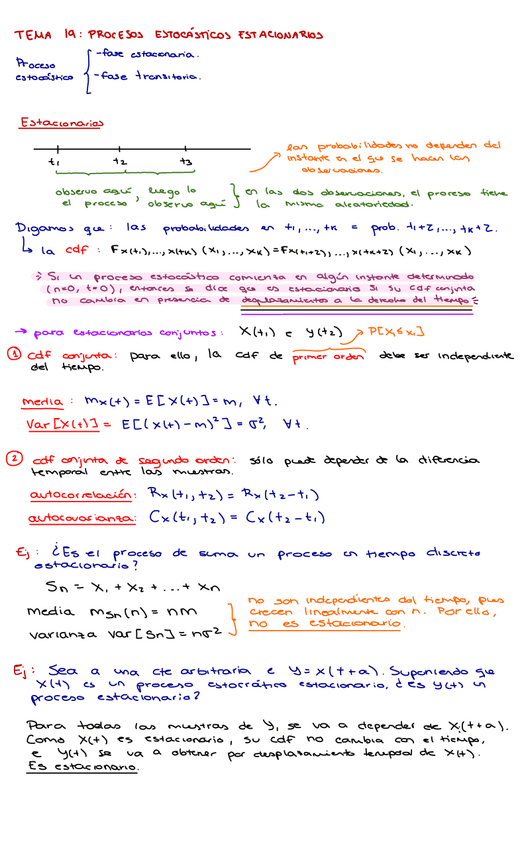 TEMA 19: PROCESOS ESTOCÁSTICOS ESTACIONARIOS
Proceso estocástico
-fase estacionaria.
-fase transitoria.
Estacionarios
t1 t2 t3
las probabilidades no dependen del
instante en el que se hacen las
observaciones.
observo aquí el proceso, luego lo observo aquí
en las dos observaciones, el proceso tiene
la misma aleatoriedad.
Digamos que: las probabilidades en t1,...,tk = prob. t1+2,...,tk+2.
↳ la cdf: Fx(t1),...,x(tk) (x1,...,xk) = Fx(t1+2),...,x(tk+2) (x1,...,xk)
Si un proceso estocástico comienza en algún instante determinado
(n=0, t=0), entonces se dice que es estacionario si su cdf conjunta
no cambia en presencia de desplazamientos a la derecha del tiempo
→ para estacionarios conjuntos: X(t1) e Y(t2)
P[X1≤x1]
① cdf conjunta: para ello, la cdf de primer orden debe ser independiente
del tiempo.
media: mx(t) = E[X(t)] = m, ∀t.
Var[X(t)] = E[(X(t)-m)²] = σ², ∀t.
② cdf conjunta de segundo orden: sólo puede depender de la diferencia
temporal entre las muestras.
autocorrelación: Rx(t1,t2) = Rx(t2-t1)
autocovarianza: Cx(t1,t2) = Cx(t2-t1)
Ej: ¿Es el proceso de suma un proceso en tiempo discreto
estacionario?
Sn = X1 + X2 + ... + Xn
media mSn(n) = nm
varianza var[Sn] = nσ²
no son independientes del tiempo, pues
crecen linealmente con n. Por ello,
no es estacionario.
Ej: Sea a una cte arbitraria e Y=X(t+a). Suponiendo que
X(t) es un proceso estocrático estacionario, ¿es Y(t) un
proceso estacionario?
Para todas las muestras de Y, se va a depender de X(t+a).
Como X(t) es estacionario, su cdf no cambia con el tiempo,
e Y(t) se va a obtener por desplazamiento temporal de X(t).
Es estacionario.